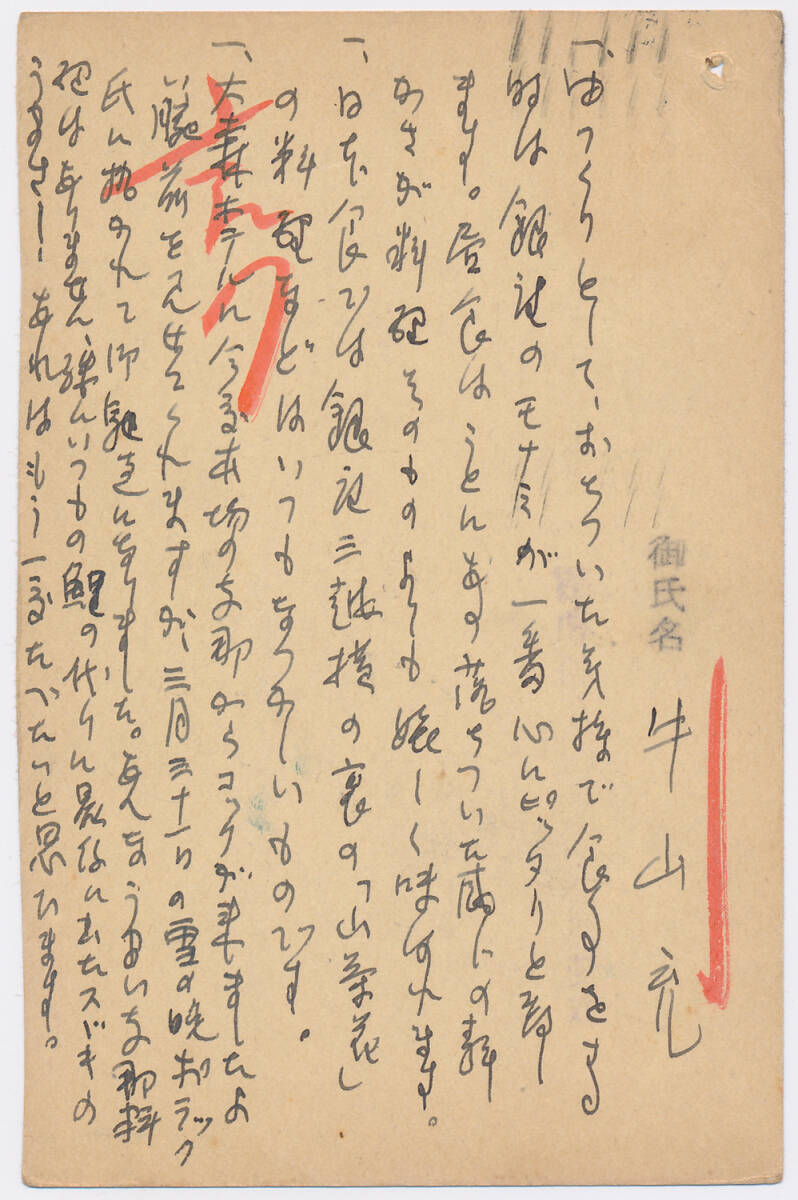 御氏名 牛山充
一、ゆつくりとして、おちついた気持で食事をする
時は銀座のモナミが一番心にピッタリと致し
ます。昼食はことにあの落ちついた雨じの静
かさが料理そのものよりも嬉しく味はれます。
一、日本食では銀座三越横の裏の「山茶花」
の料理などはいつもなつかしいものです。
一、大森ホテルに今度本場の支那からコックが来ましたよ
い腕前を見せてくれますが、三月三十一日の雪の晩ポラック
氏に招かれて御馳走になりました。あんなうまい支那料
理はありません、殊にいつもの鯉の代りに最後に出たスズキの
うまさ！あれはもう一度たべたいと思ひます。